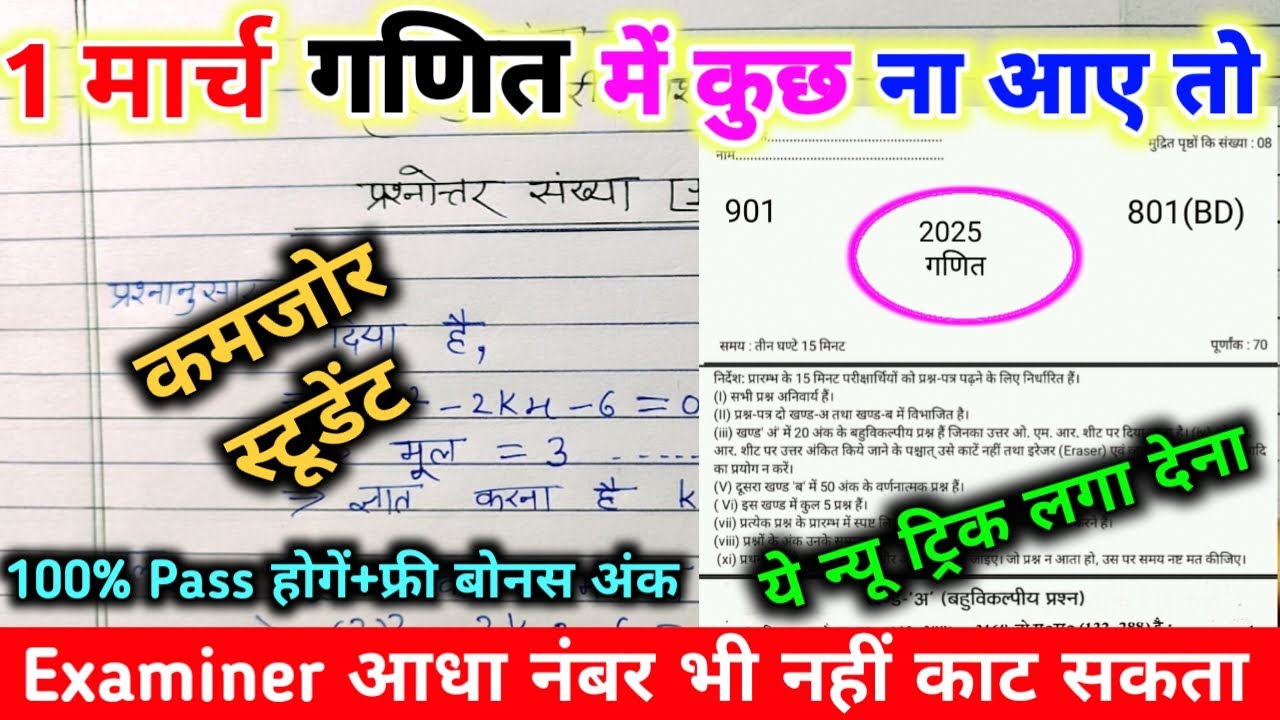 1 मार्च गणित में कुछ ना आए तो
प्रश्नोत्तर संख्या
प्रश्नानुसार
दिया है,
- 2kx - 6 = 0
मूल = 3 .....
⇒ ज्ञात करना है k
कमजोर
स्टूडेंट
100% Pass होगें+फ्री बोनस अंक
नाम
मुद्रित पृष्ठों कि संख्या : 08
901
2025
गणित
801(BD)
समय : तीन घण्टे 15 मिनट
पूर्णांक : 70
निर्देश: प्रारम्भ के 15 मिनट परीक्षार्थियों को प्रश्न-पत्र पढ़ने के लिए निर्धारित हैं।
(I) सभी प्रश्न अनिवार्य हैं।
(II) प्रश्न-पत्र दो खण्ड-अ तथा खण्ड-ब में विभाजित है।
(iii) खण्ड' अं' में 20 अंक के बहुविकल्पीय प्रश्न हैं जिनका उत्तर ओ. एम. आर. शीट पर
आर. शीट पर उत्तर अंकित किये जाने के पश्चात् उसे काटें नहीं तथा इरेजर (Eraser)
का प्रयोग न करें।
(V) दूसरा खण्ड 'ब' में 50 अंक के वर्णनात्मक प्रश्न हैं।
( Vi) इस खण्ड में कुल 5 प्रश्न हैं।
(vii) प्रत्येक प्रश्न के प्रारम्भ में स्पष्ट
(viii) प्रश्नों के अंक उनके
(xi) जो प्रश्न न आता हो, उस पर समय नष्ट मत कीजिए।
ये न्यू ट्रिक लगा देना
'अ' (बहुविकल्पीय प्रश्न)
Examiner आधा नंबर भी नहीं काट सकता